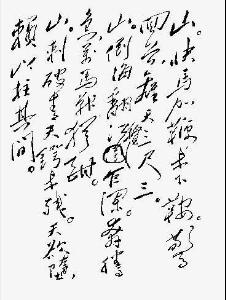 山。快馬加鞭未下鞍。驚
回首，離天三尺三。
山。倒海翻江捲巨瀾。奔騰
急，萬馬戰猶酣。
山。刺破青天鍔未殘。天欲墮，
賴以拄其間。